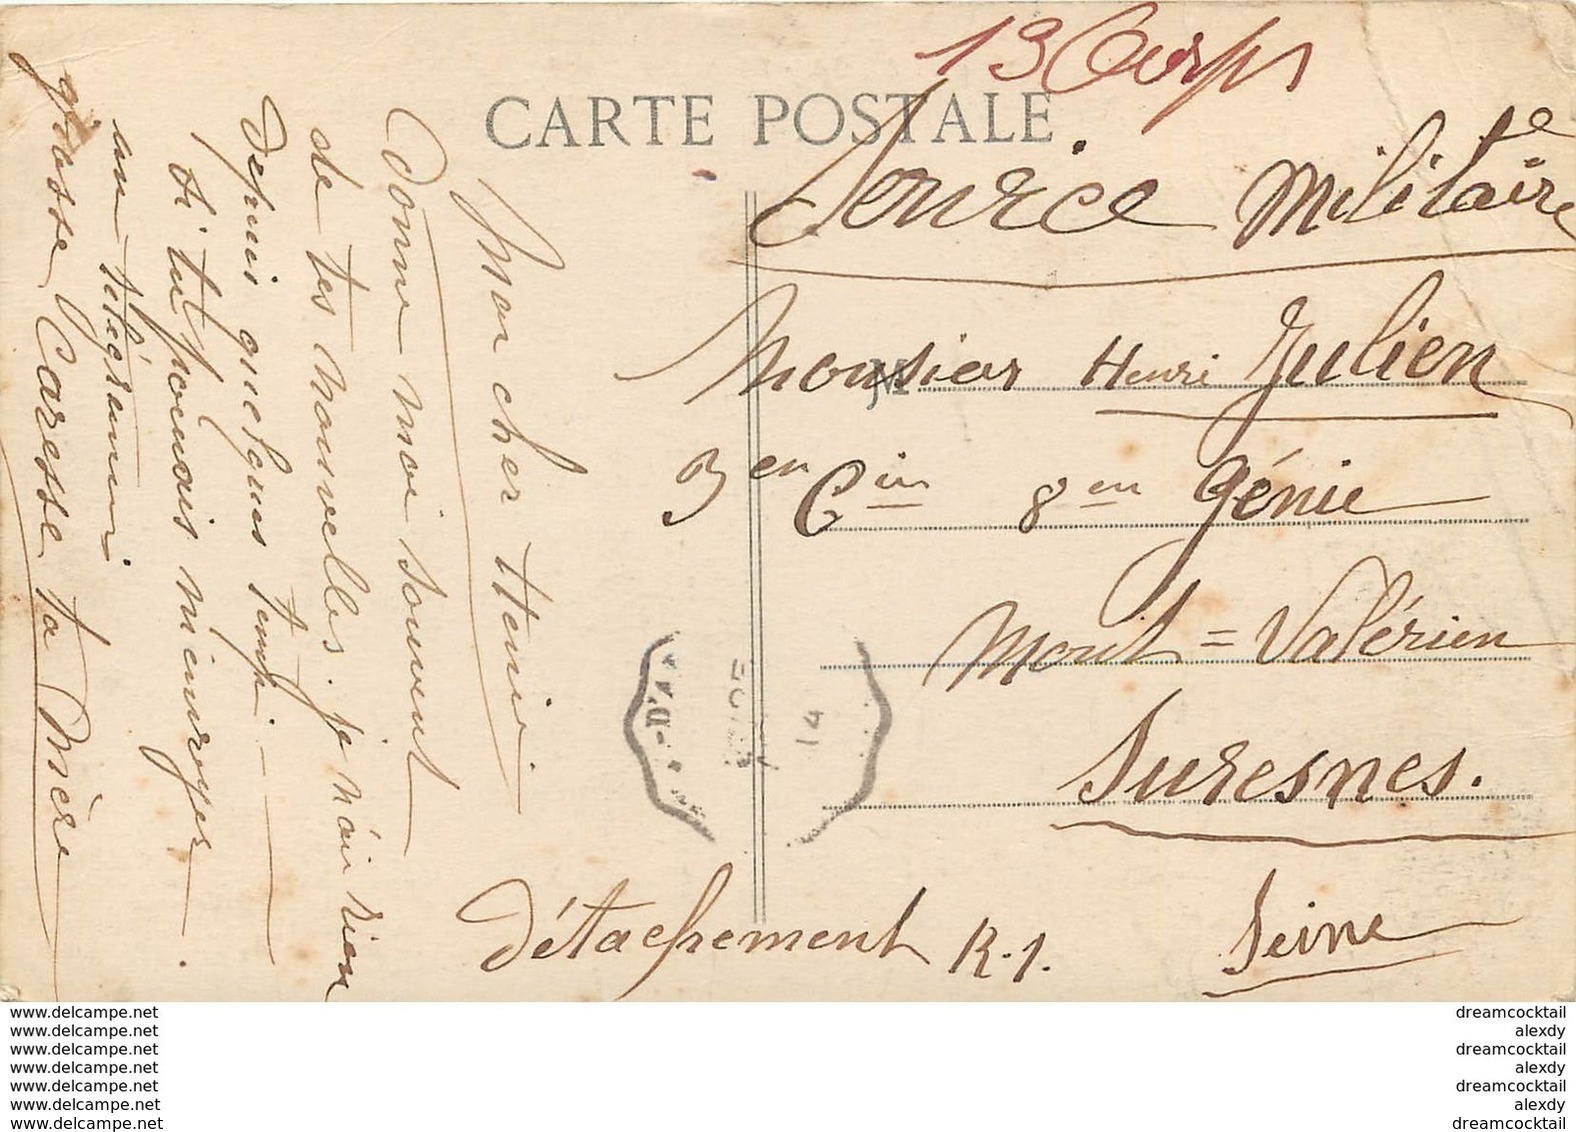 13 Corps
CARTE POSTALE
Service Militaire
Monsieur Henri Julien
M
3en Cin 8en Génie
Mont=Valérien
Suresnes.
Seine
Détachement R.1.
Mon cher Henri
donne moi souvent
de tes nouvelles. je n'ai rien
depuis quelques temps.
si tu pouvais m'envoyer
un télégramme
grosse Caresse ta Mère
14
www.delcampe.net
www.delcampe.net
www.delcampe.net
www.delcampe.net
www.delcampe.net
www.delcampe.net
www.delcampe.net
dreamcocktail
alexdy
dreamcocktail
alexdy
dreamcocktail
alexdy
dreamcocktail